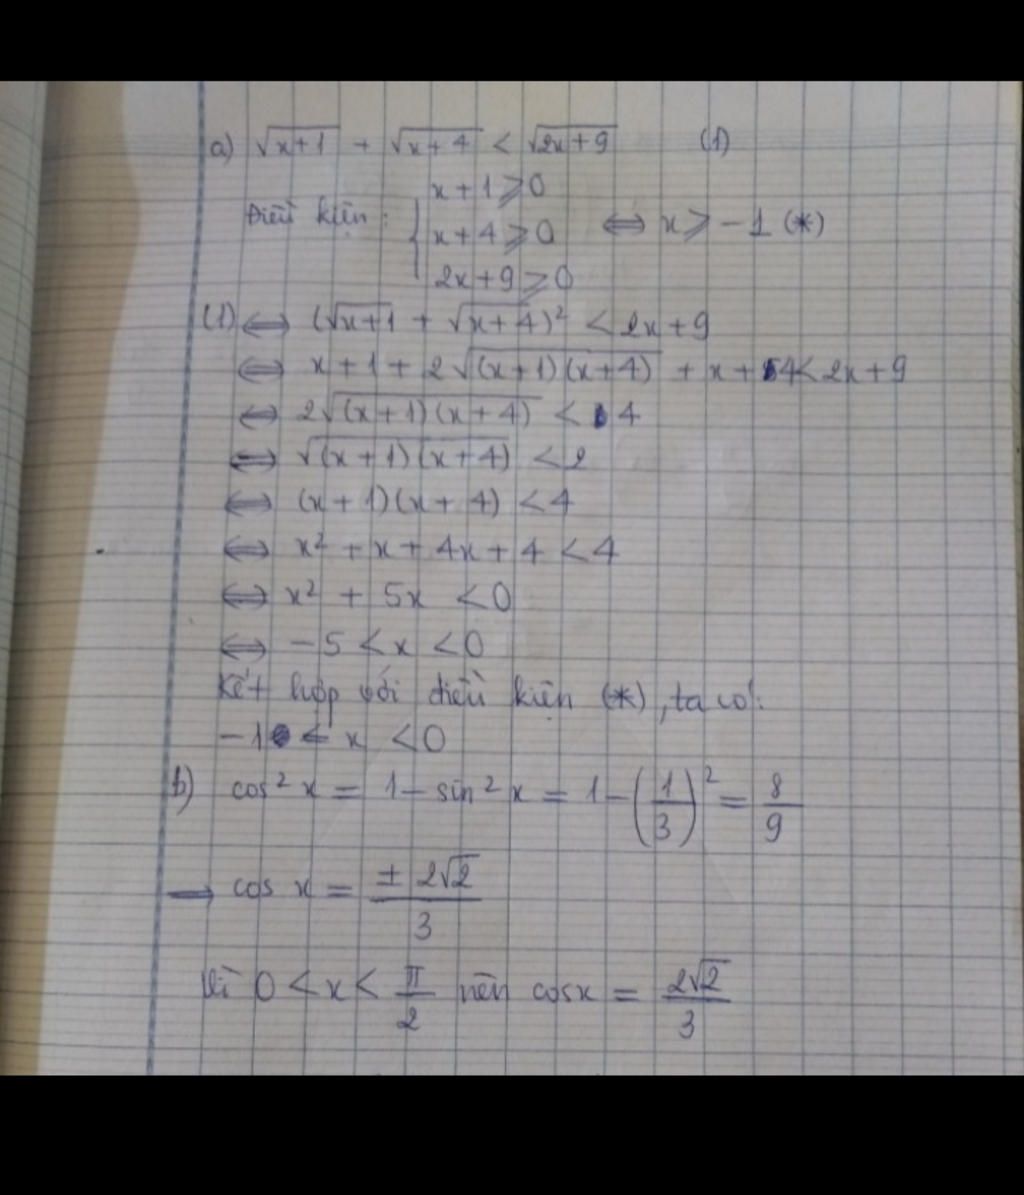 a) √(x+1) + √(x+4) < √(2x+9) (1)
Điều kiện: { x+1 ⩾ 0
x+4 ⩾ 0 ⟺ x ⩾ -1 (*)
2x+9 ⩾ 0
(1) ⟺ (√(x+1) + √(x+4))² < 2x+9
⟺ x+1+2√((x+1)(x+4)) + x+4 < 2x+9
⟺ 2√((x+1)(x+4)) < 4
⟺ √((x+1)(x+4)) < 2
⟺ (x+1)(x+4) < 4
⟺ x² + x + 4x + 4 < 4
⟺ x² + 5x < 0
⟺ -5 < x < 0
Kết hợp với điều kiện (*), ta có:
-1 ≤ x < 0
b) cos² x = 1 - sin² x = 1 - (1/3)² = 8/9
⟶ cos x = ± 2√2 / 3
Vì 0 < x < π/2 nên cosx = 2√2/3